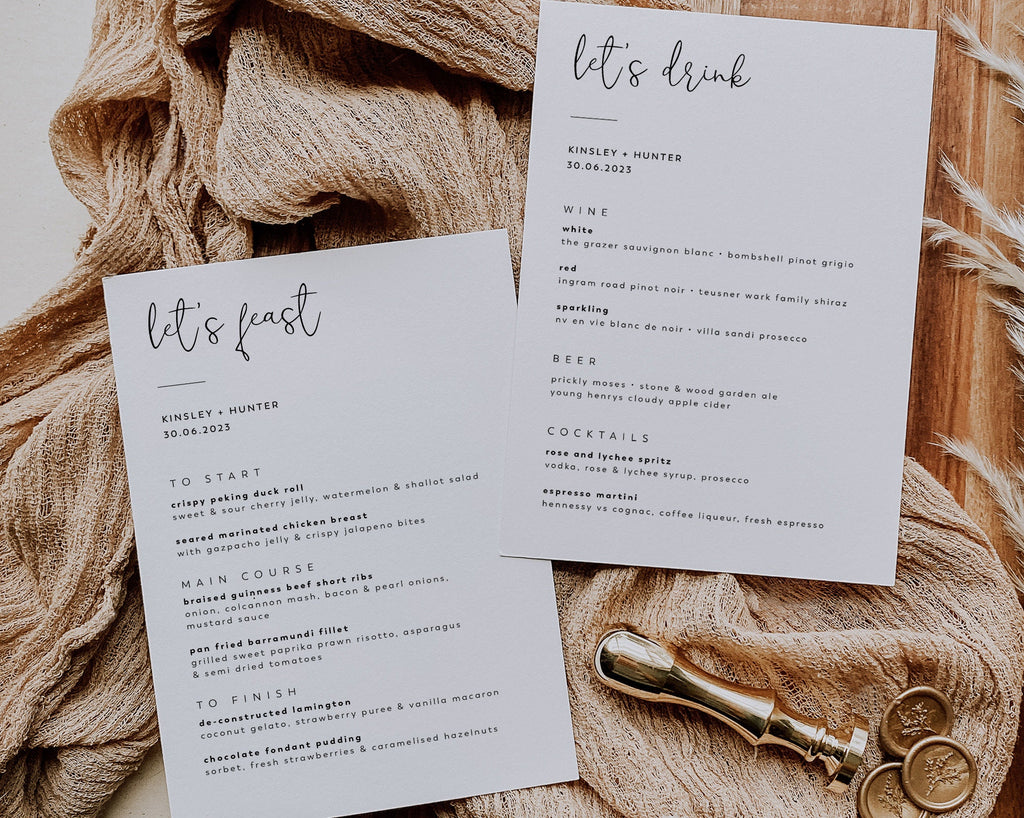 let's feast
KINSLEY + HUNTER
30.06.2023
TO START
crispy peking duck roll
sweet & sour cherry jelly, watermelon & shallot salad
seared marinated chicken breast
with gazpacho jelly & crispy jalapeno bites
MAIN COURSE
braised guinness beef short ribs
onion, colcannon mash, bacon & pearl onions,
mustard sauce
pan fried barramundi fillet
grilled sweet paprika prawn risotto, asparagus
& semi dried tomatoes
TO FINISH
de-constructed lamington
coconut gelato, strawberry puree & vanilla macaron
chocolate fondant pudding
sorbet, fresh strawberries & caramelised hazelnuts
let's drink
KINSLEY + HUNTER
30.06.2023
WINE
white
the grazer sauvignon blanc • bombshell pinot grigio
red
ingram road pinot noir • teusner wark family shiraz
sparkling
nv en vie blanc de noir • villa sandi prosecco
BEER
prickly moses • stone & wood garden ale
young henrys cloudy apple cider
COCKTAILS
rose and lychee spritz
vodka, rose & lychee syrup, prosecco
espresso martini
hennessy vs cognac, coffee liqueur, fresh espresso